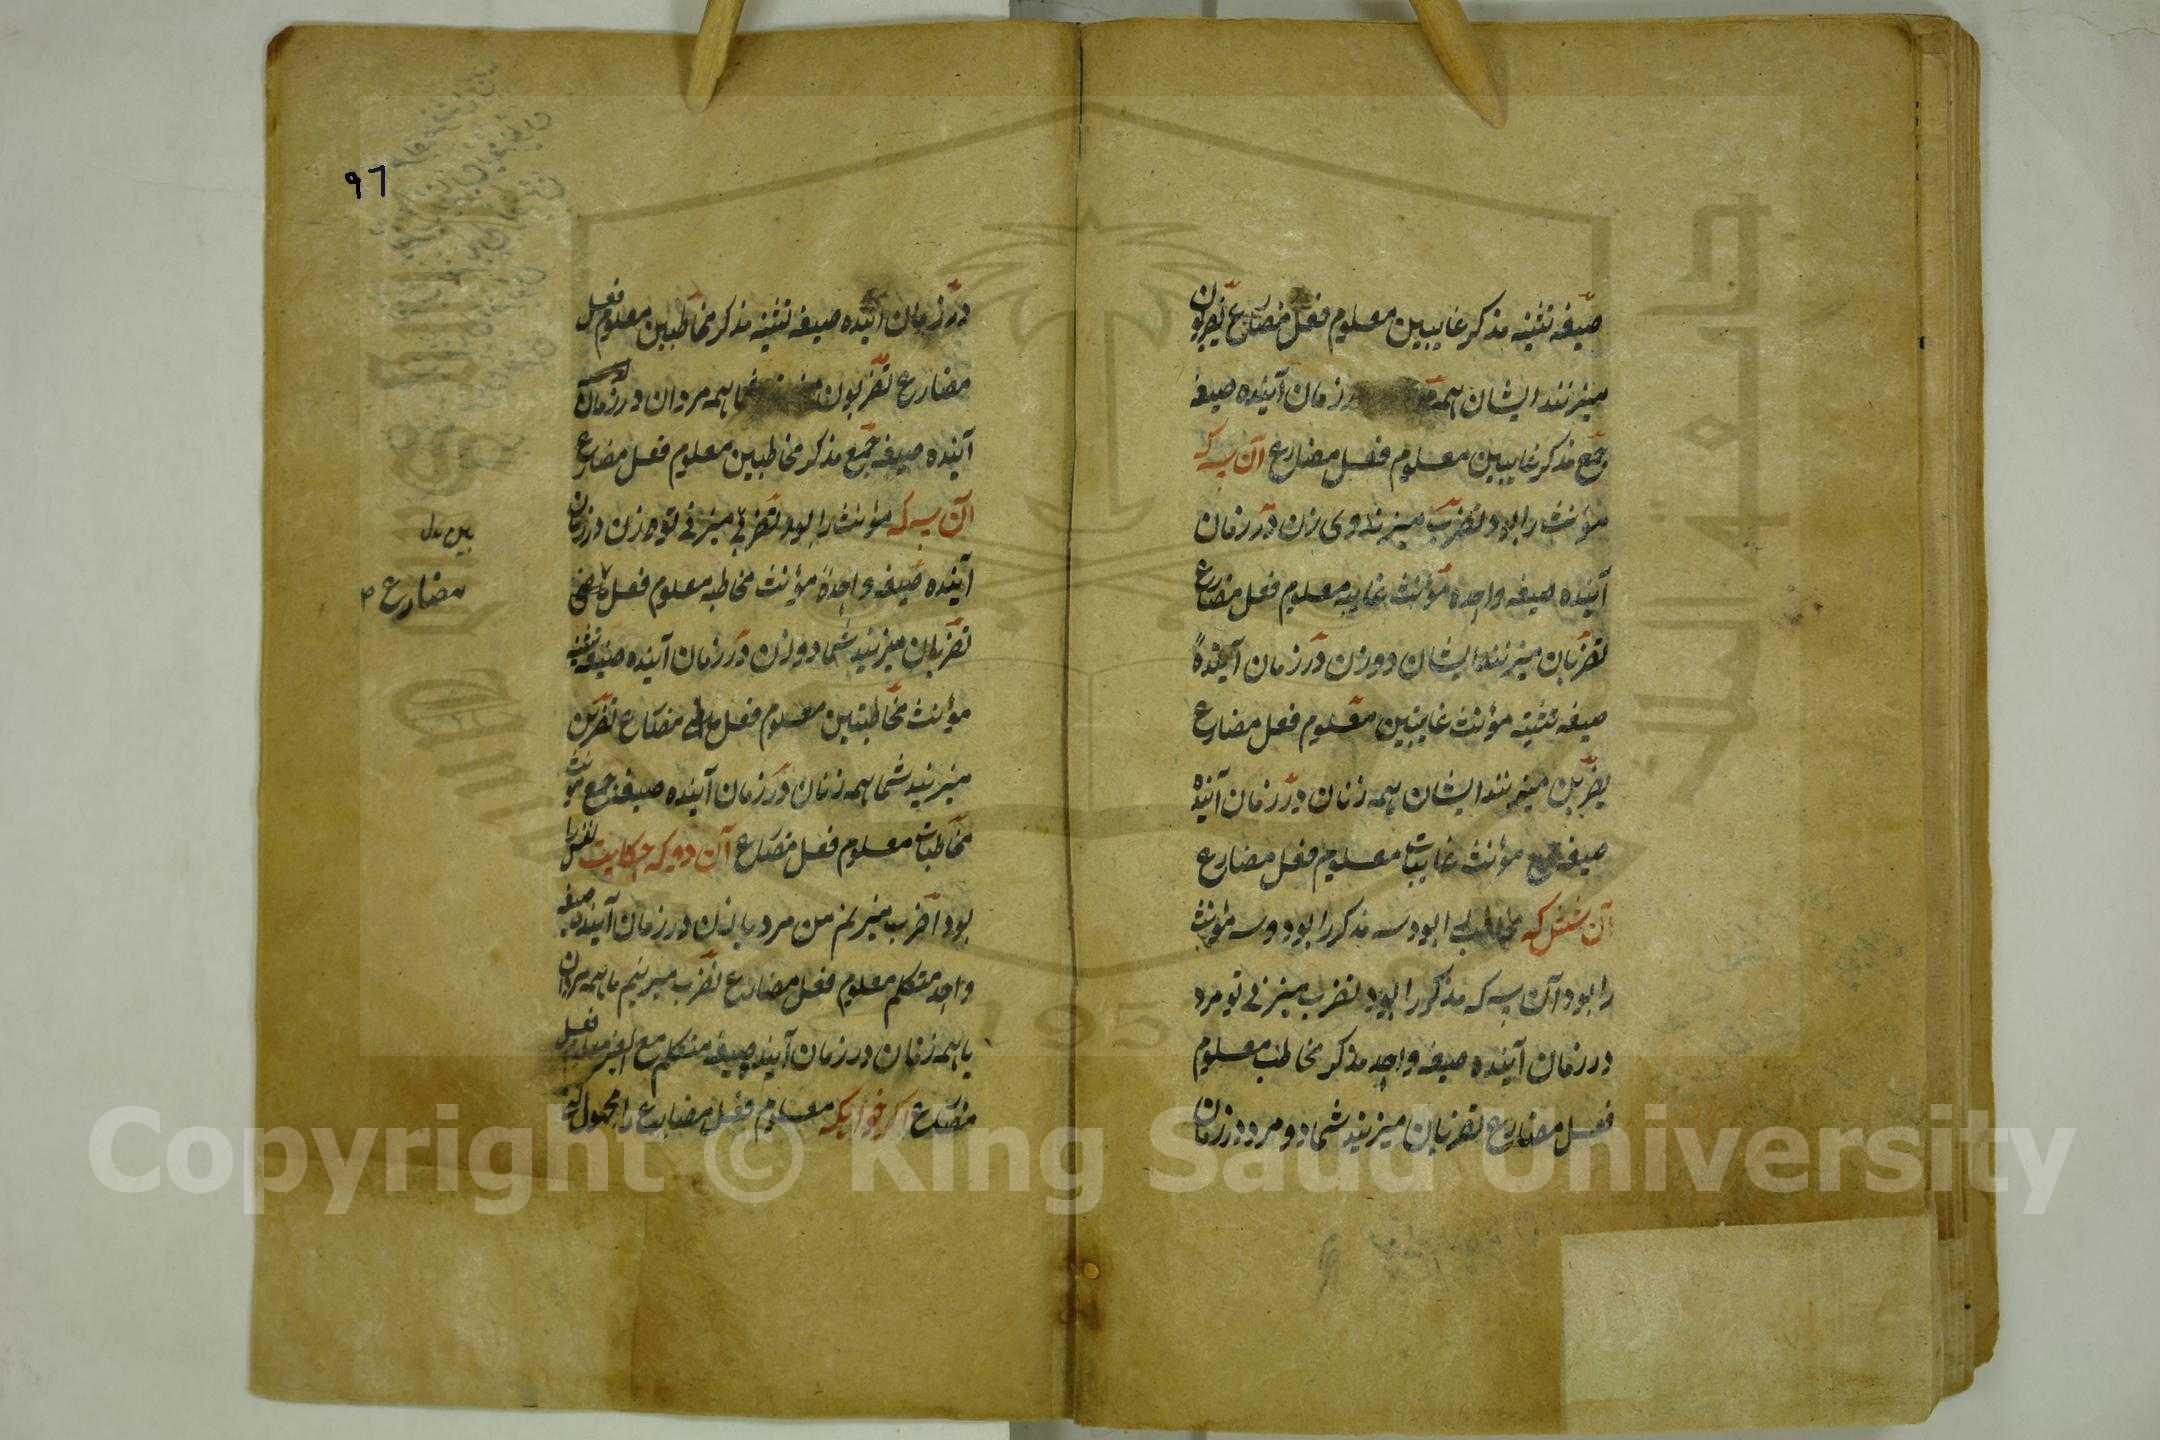 صیغه تثنیه مذکر غایبین معلوم فعل مضارع یضربون
میزنند ایشان همه زمان آینده صیغه
جمع مذکر غایبین معلوم فعل مضارع آن سه که
مؤنث را بود تضرب میزند وی زن در زمان
آینده صیغه واحدة مؤنث غایبه معلوم فعل مضارع
تضربان میزنند ایشان دو زن در زمان آینده
صیغه تثنیه مؤنث غایبتین معلوم فعل مضارع
یضربن میزنند ایشان همه زنان در زمان آینده
صیغه جمع مؤنث غایبات معلوم فعل مضارع
آن شش که مخاطب را بود سه مذکر را بود و سه مؤنث
را بود آن سه که مذکر را بود تضرب میزنی تو مرد
در زمان آینده صیغه واحد مذکر مخاطب معلوم
فعل مضارع تضربان میزنید شما دو مرد در زمان
در زمان آینده صیغه تثنیه مذکر مخاطبین معلوم فعل
مضارع تضربون شما همه مردان در زمان
آینده صیغه جمع مذکر مخاطبین معلوم فعل مضارع
آن سه که مؤنث را بود تضربی میزنی تو زن در زمان
آینده صیغه واحدة مؤنث مخاطبه معلوم فعل
تضربان میزنید شما دو زن در زمان آینده صیغه تثنیه
مؤنث مخاطبتین معلوم فعل مضارع تضربن
میزنید شما همه زنان در زمان آینده صیغه جمع مؤنث
مخاطبات معلوم فعل مضارع آن دو که حکایت نفس را
بود اضرب میزنم من مرد یا زن در زمان آینده صیغه
واحد متکلم معلوم فعل مضارع نضرب میزنیم ما همه مردان
یا همه زنان در زمان آینده صیغه متکلم مع الغیر معلوم فعل
مضارع اگر خواهیکه معلوم فعل مضارع را مجهول کنی
٩٦
مضارع
Copyright © King Saud University
جامعة الملك سعود
1957